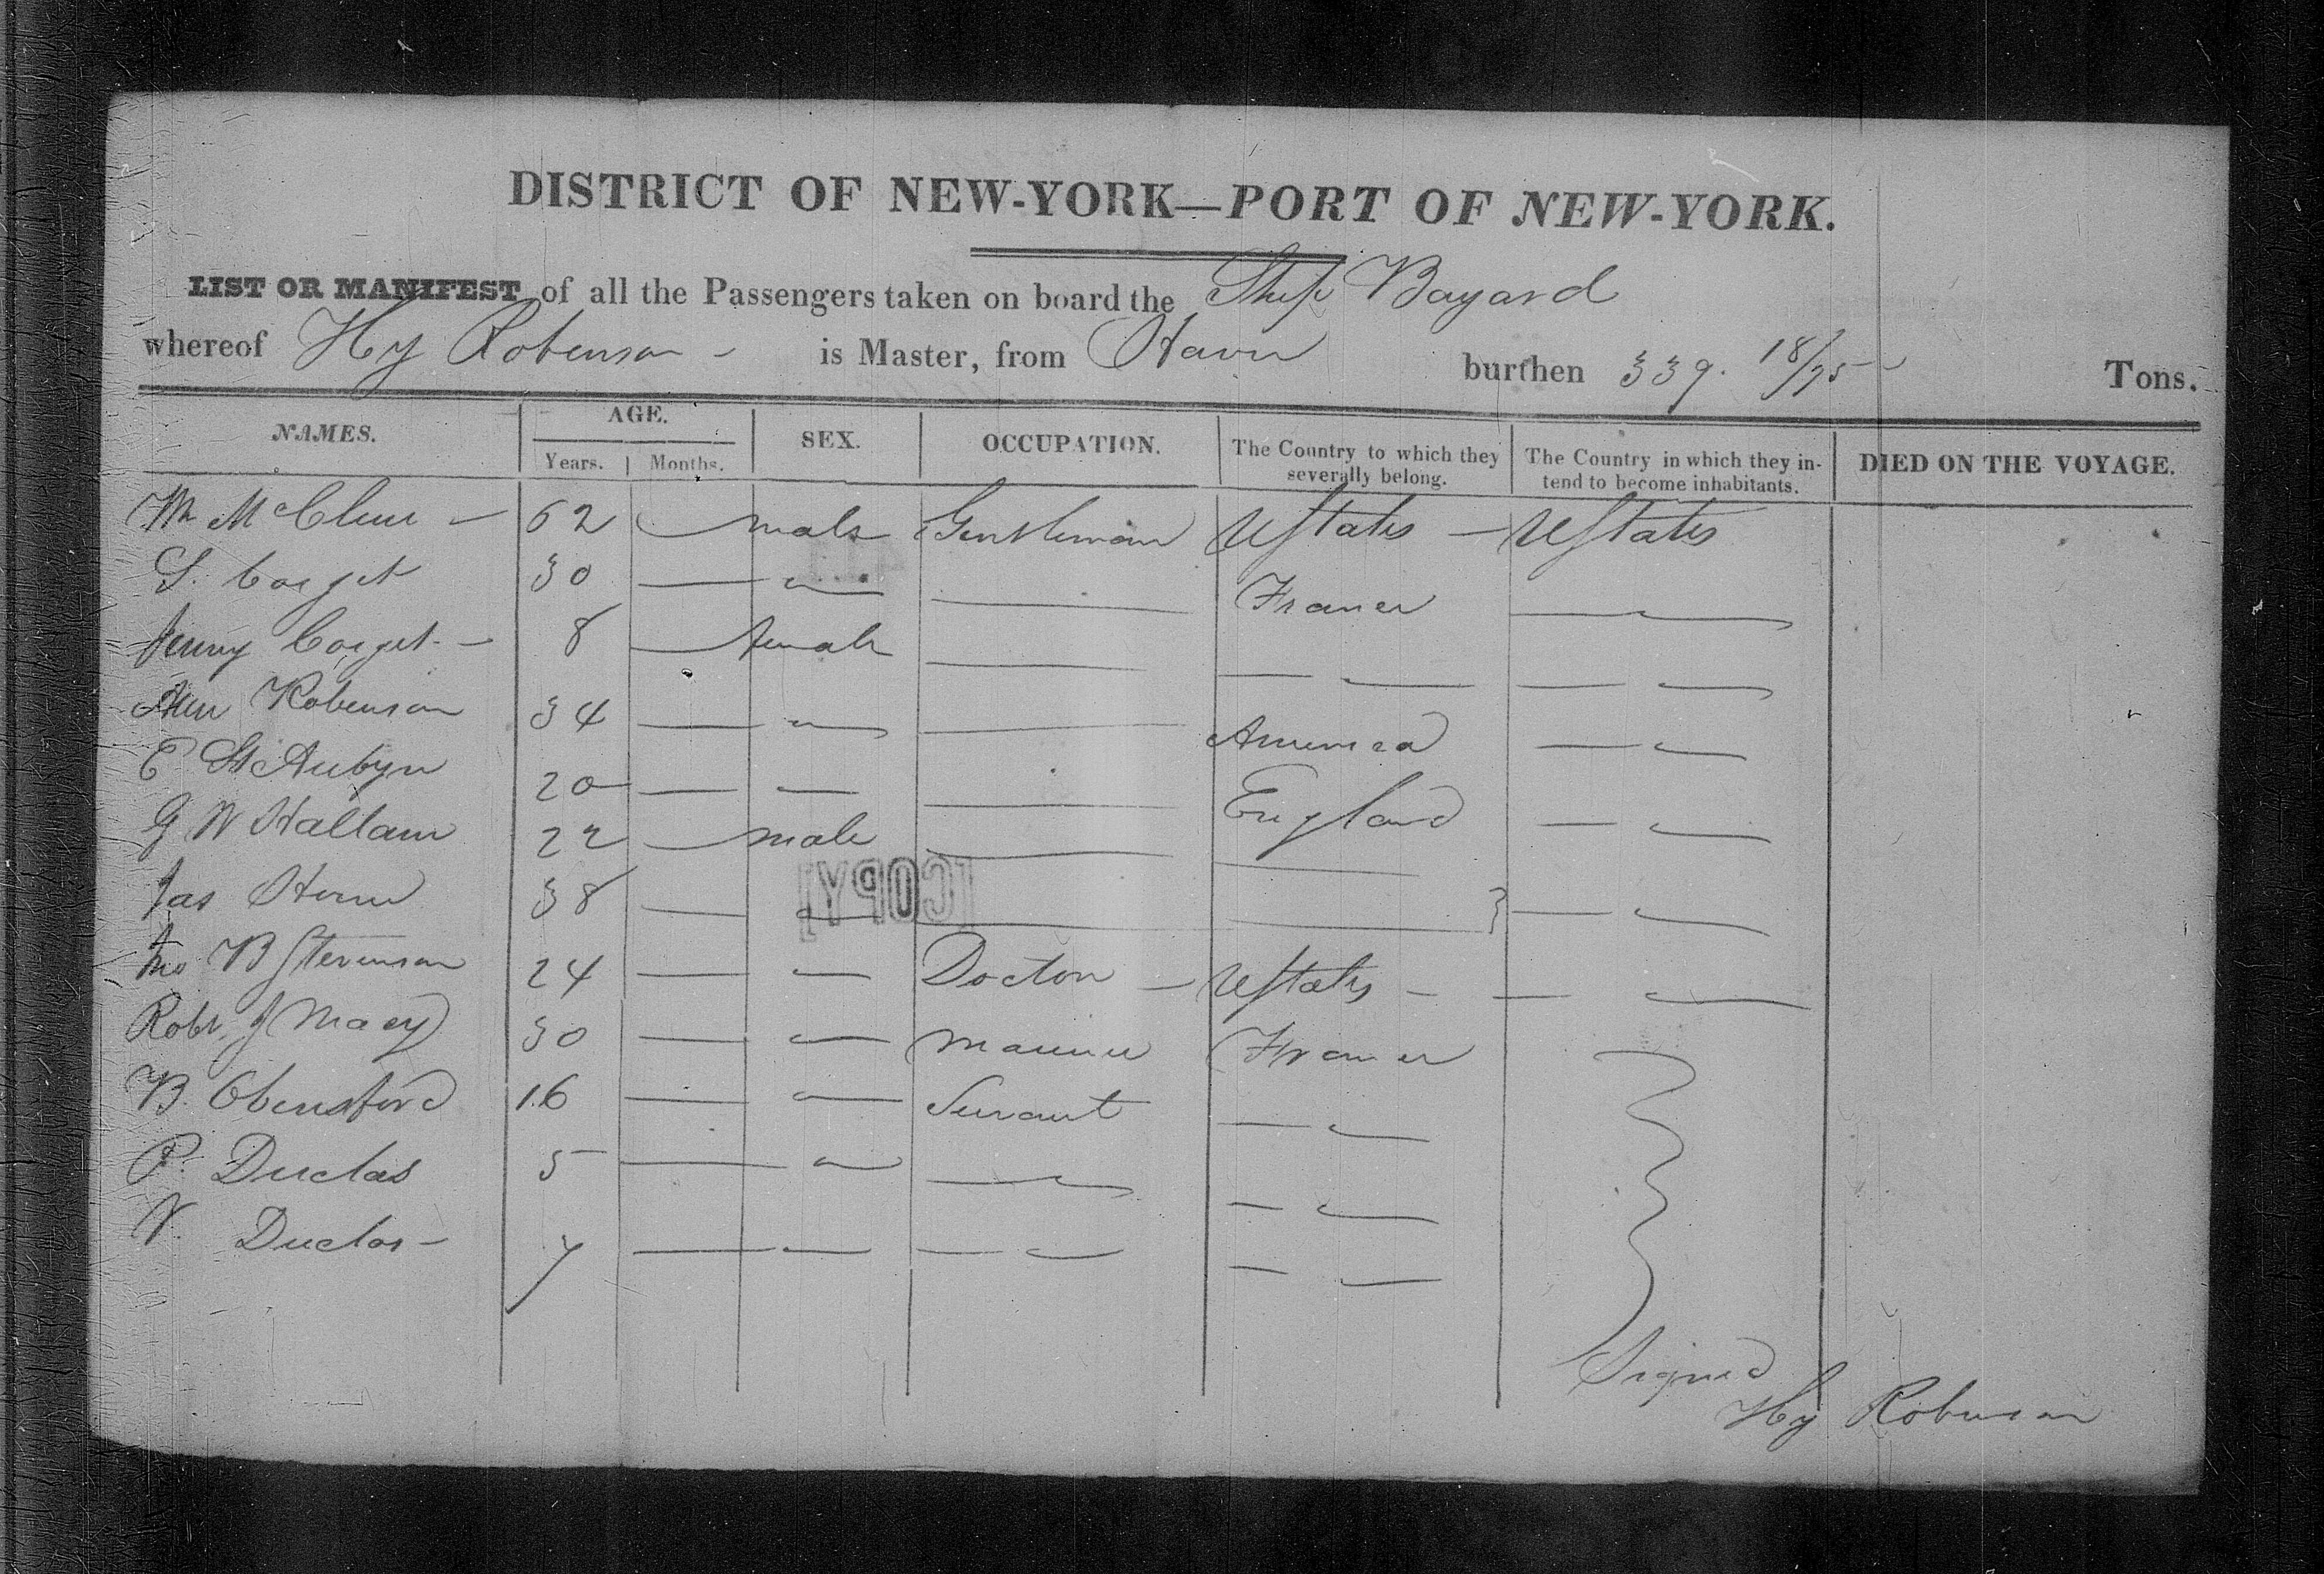 DISTRICT OF NEW-YORK—PORT OF NEW-YORK.
LIST OR MANIFEST of all the Passengers taken on board the Ship Bayard
whereof Hy Robinson - is Master, from Havre burthen 339. 18/95 Tons.
NAMES. AGE. SEX. OCCUPATION. The Country to which they severally belong. The Country in which they intend to become inhabitants. DIED ON THE VOYAGE.
Years. Months.
Wm McClure 62 male Gentleman UStates — UStates
S. Corget 30 France
Jenny Corget 8 female
Ann Robinson 34 America
E St Aubyn 20 England
G W Hallam 22 male
Jas 38
[COPY]
B Stevenson 24 Doctor — UStates —
Robt J Macy 30 Marine France
B. 16 Servant
P. Duclos 5
V. Duclos 7
Signed
Hy Robinson